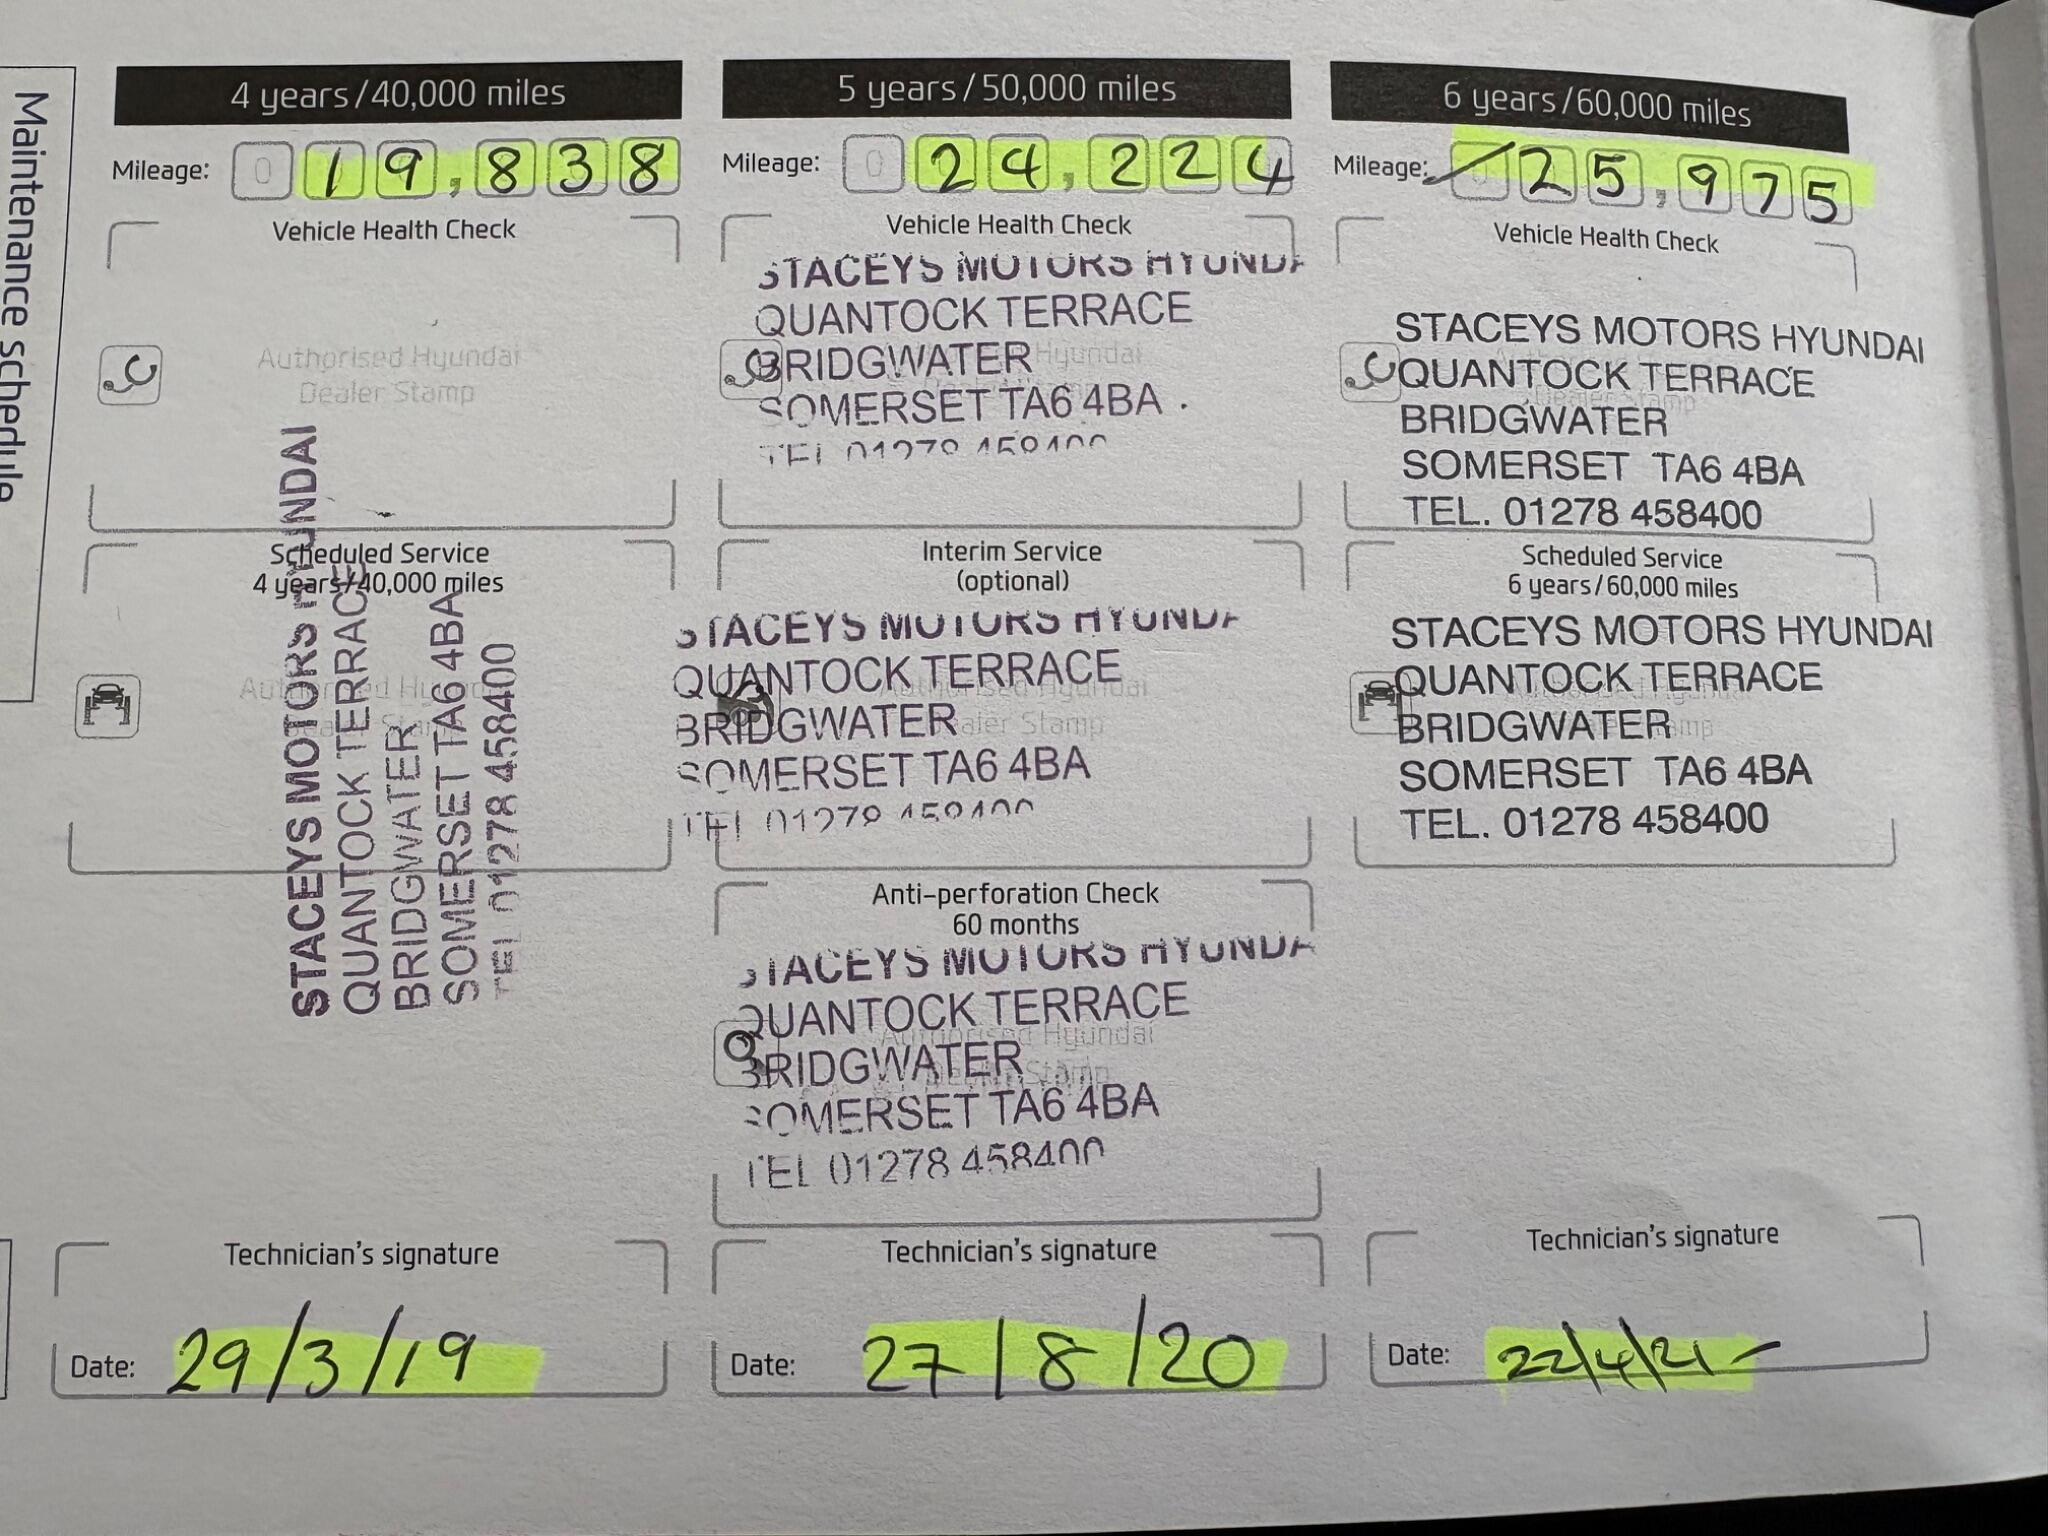 Maintenance schedule
4 years/40,000 miles
Mileage: 0 19,838
Vehicle Health Check
Authorised Hyundai
Dealer Stamp
Scheduled Service
4 years/40,000 miles
Authorised Hyundai
Dealer Stamp
STACEYS MOTORS HYUNDAI
QUANTOCK TERRACE
BRIDGWATER
SOMERSET TA6 4BA
TEL 01278 458400
Technician's signature
Date: 29/3/19
5 years/50,000 miles
Mileage: 0 24,224
Vehicle Health Check
Authorised Hyundai
Dealer Stamp
STACEYS MOTORS HYUNDAI
QUANTOCK TERRACE
BRIDGWATER
SOMERSET TA6 4BA
TEL 01278 458400
Interim Service
(optional)
Authorised Hyundai
Dealer Stamp
STACEYS MOTORS HYUNDAI
QUANTOCK TERRACE
BRIDGWATER
SOMERSET TA6 4BA
TEL 01278 458400
Anti-perforation Check
60 months
Authorised Hyundai
Dealer Stamp
STACEYS MOTORS HYUNDAI
QUANTOCK TERRACE
BRIDGWATER
SOMERSET TA6 4BA
TEL 01278 458400
Technician's signature
Date: 27/8/20
6 years/60,000 miles
Mileage: 25,975
Vehicle Health Check
Dealer Stamp
STACEYS MOTORS HYUNDAI
QUANTOCK TERRACE
BRIDGWATER
SOMERSET TA6 4BA
TEL. 01278 458400
Scheduled Service
6 years/60,000 miles
STACEYS MOTORS HYUNDAI
QUANTOCK TERRACE
BRIDGWATER
SOMERSET TA6 4BA
TEL. 01278 458400
Technician's signature
Date: 22/4/21